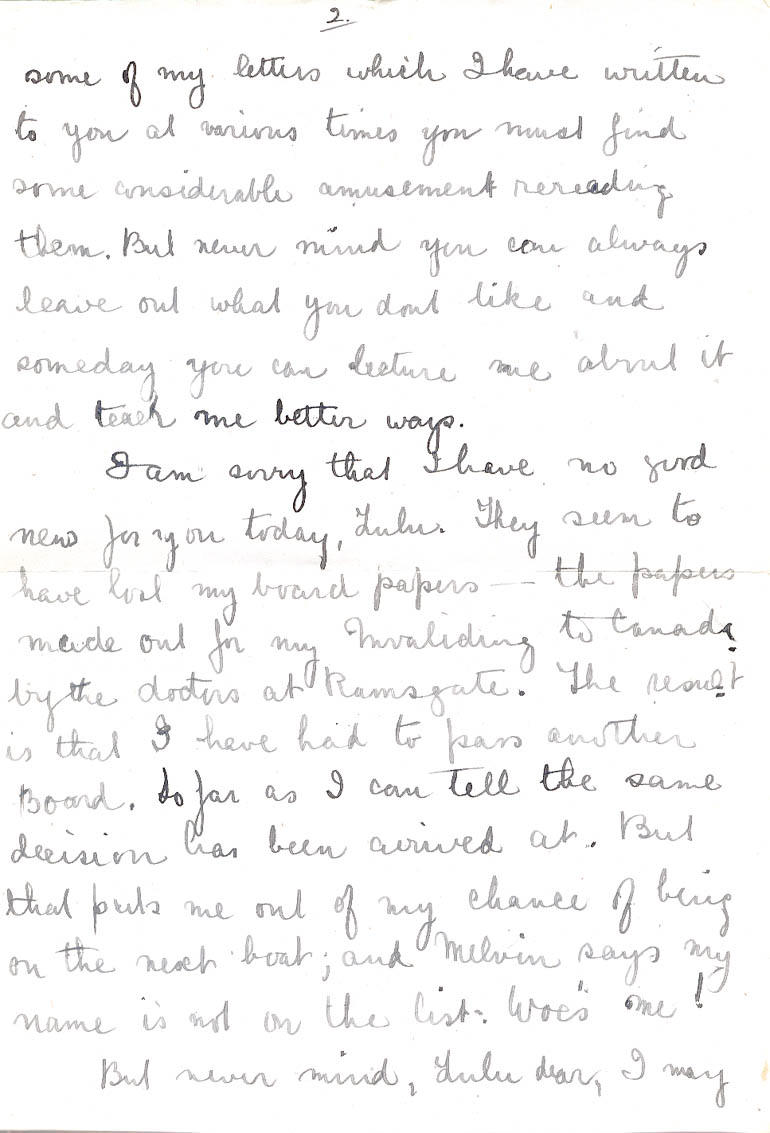 2.
some of my letters which I have written
to you at various times you must find
some considerable amusement rereading
them. But never mind you can always
leave out what you dont like and
someday you can lecture me about it
and teach me better ways.
I am sorry that I have no good
news for you today, Lulu. They seem to
have lost my board papers — the papers
made out for my Invaliding to Canada
by the doctors at Ramsgate. The result
is that I have had to pass another
Board. So far as I can tell the same
decision has been arrived at. But
that puts me out of my chance of being
on the next boat; and Melvin says my
name is not on the list. Woe's me!
But never mind, Lulu dear, I may